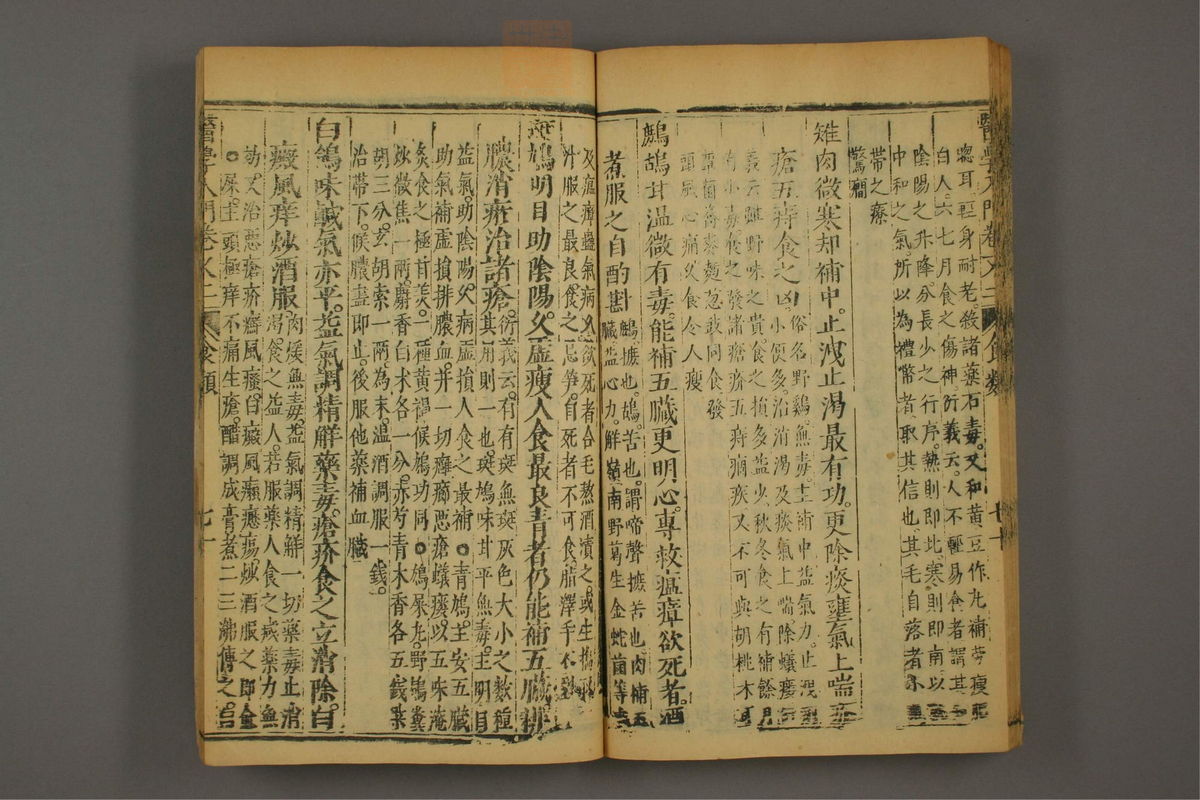 醫學入門卷之二 食類 七十
聰耳輕身耐老殺諸藥石毒又和黃豆作丸補勞瘦肥
白人六七月食之傷神衍義云人不輕易食者謂其
陰陽之升降分長少之行序熱則即北寒則即南以
中和之氣所以為禮幣者取其信也其毛自落者小
帶之療
驚癇
雉肉微寒却補中止洩止渴最有功更除痰壅氣上喘
瘡五痔食之凶俗名野雞無毒主補中益氣力止洩
小便多治消渴及痰氣上喘除蟻瘻
義云雖野味之貴食之損多益少秋冬食之有補餘月
有小毒食之發諸瘡疥五痔癇疾又不可與胡桃木
蕈菌蕎麥麵葱豉同食發
頭風心痛久食令人瘦
鷓鴣甘溫微有毒能補五臟更明心專救瘟瘴欲死者酒
煮服之自酌斟鷓摭也鴣苦也謂啼聲摭苦也肉補五
臟益心力解嶺南野葛生金蛇菌等毒
及瘟瘴蠱氣病欲死者合毛熬酒漬之或生搗取
汁服之最良食之忌笋自死者不可食脂澤手不裂
斑鳩明目助陰陽久虛瘦人食最良青者仍能補五臟排
膿消瘀治諸瘡衍義云有有斑無斑灰色大小之數種
其用則一也斑鳩味甘平無毒主明目
益氣助陰陽久病虛損人食之最補○青鳩主安五臟
助氣補虛損排膿血并一切瘡癤惡瘡蟻瘻以五味淹
炙食之極甘美一種黃褐候鳩功同○鳩屎尤野鴿糞
炒微焦一兩麝香白朮各一分赤芍青木香各五錢柴
胡三分玄胡索一兩為末溫酒調服一錢
治帶下候膿盡即止後服他藥補血臟
白鴿味鹹氣亦平益氣調精解藥毒瘡疥食之立消除白
癜風痒炒酒服肉煖無毒益氣調精解一切藥毒止消
渴食之益人若服藥人食之減藥力無
効又治惡瘡疥癬風瘙白癜風癧瘍炒酒服之即全
○屎主頭極痒不痛生瘡醋調成膏煮二三沸傅之
醫學入門卷之二 食類 七十一